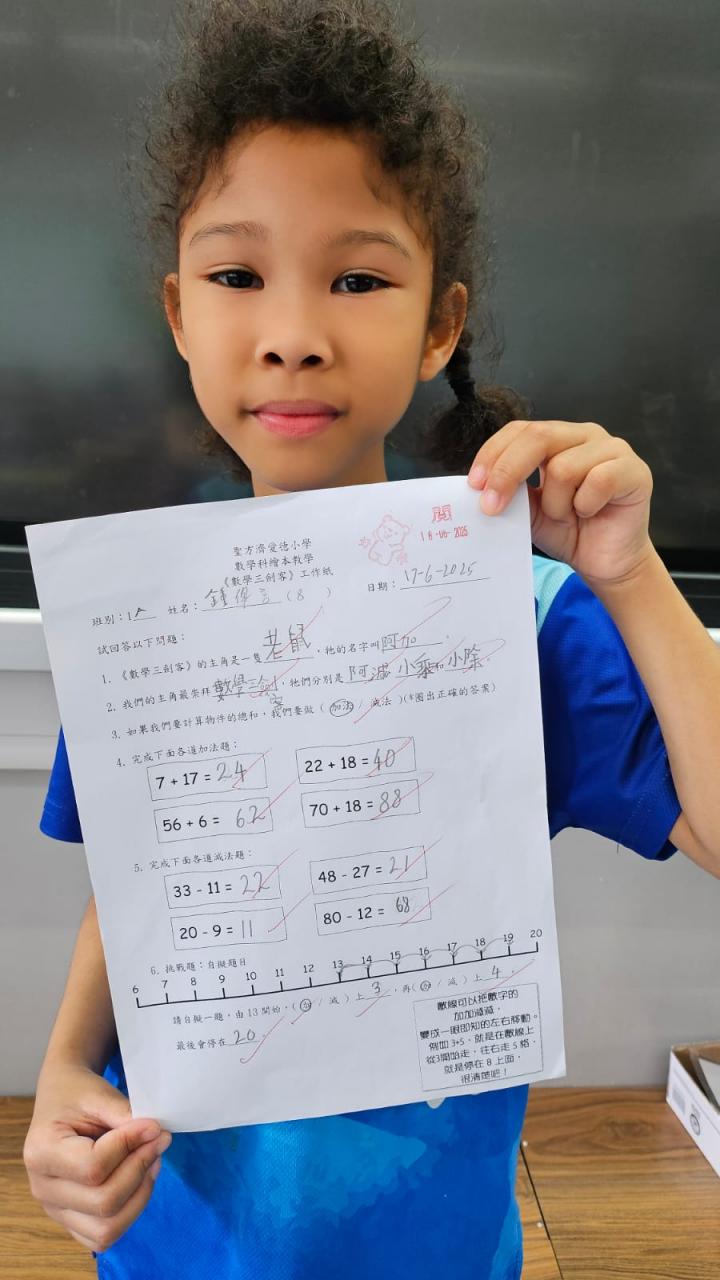 聖方濟愛德小學
數學科繪本教學
《數學三劍客》工作紙
閱
18-06-2025
班別：1人 姓名：鍾保言(8) 日期：17-6-2025
試回答以下問題：
1. 《數學三劍客》的主角是一隻老鼠，牠的名字叫阿加.
2. 我們的主角最崇拜數學三劍客，牠們分別是阿減 小乘和小除.
3. 如果我們要計算物件的總和，我們要做(加法 / 減法)(*圈出正確的答案)
4. 完成下面各道加法題：
7 + 17 = 24 22 + 18 = 40
56 + 6 = 62 70 + 18 = 88
5. 完成下面各道減法題：
33 - 11 = 22 48 - 27 = 21
20 - 9 = 11 80 - 12 = 68
6. 挑戰題：自擬題目
6 7 8 9 10 11 12 13 14 15 16 17 18 19 20
請自擬一題，由 13 開始，(加 / 減) 上 3，再(加 / 減) 上 4.
最後會停在 20.
數線可以把數字的
加加減減，
變成一眼即知的左右移動。
例如 3+5，就是在數線上
從3開始走，往右走 5 格，
就是停在 8 上面，
很清楚吧！